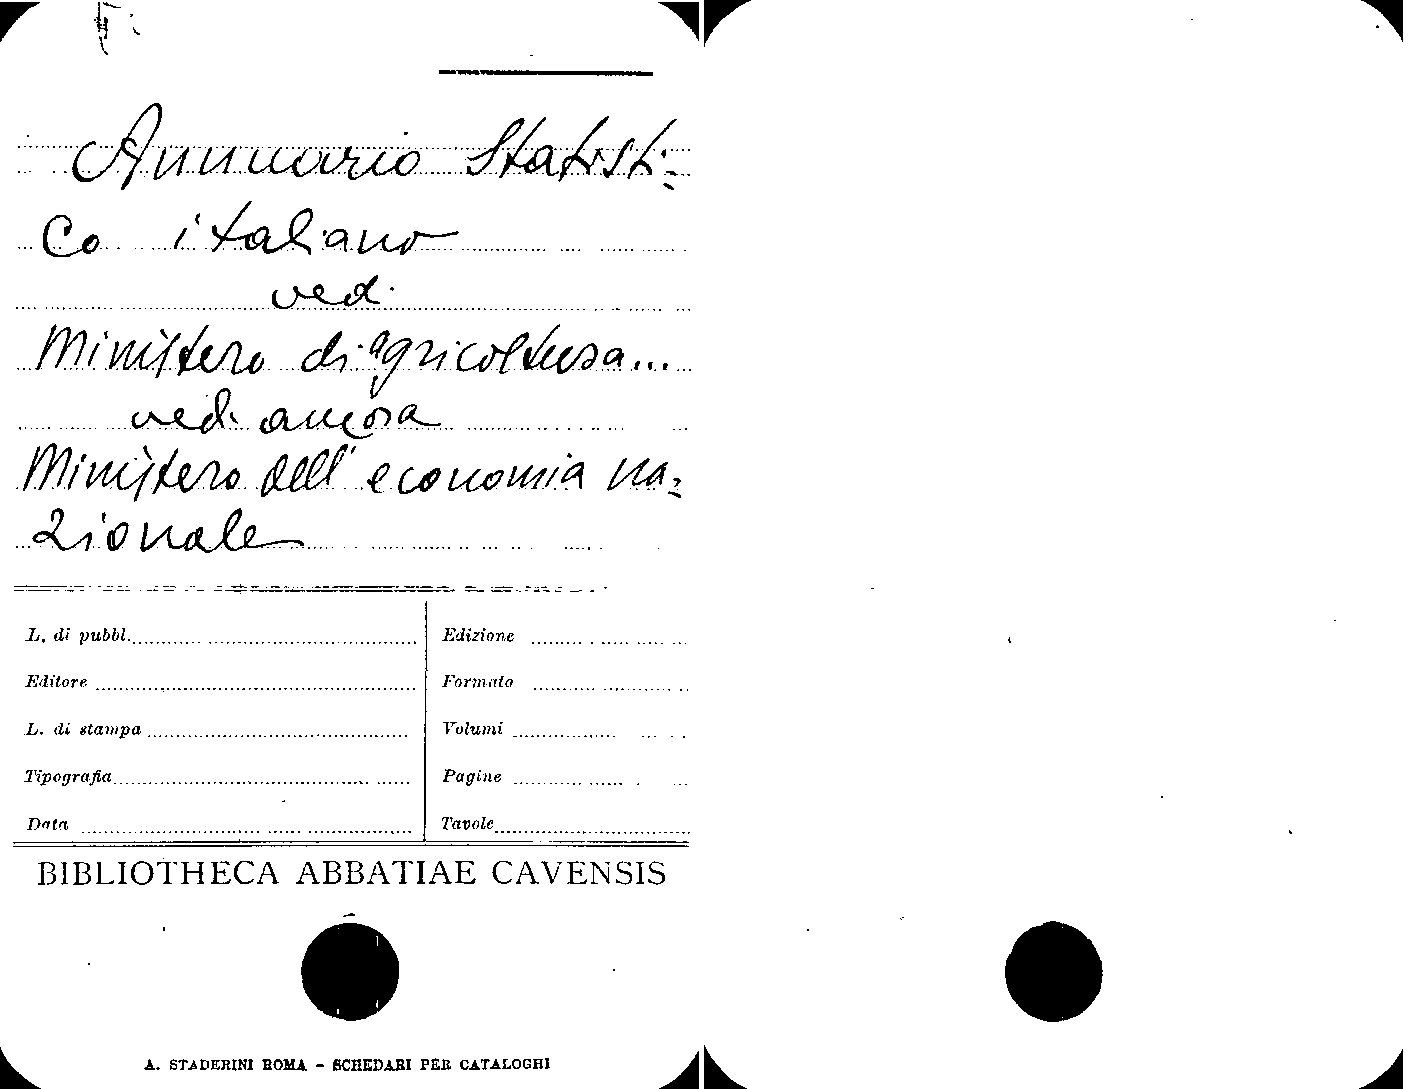 Annuario Statisti-
co italiano
vedi
Ministero di agricoltura...
vedi ancora
Ministero dell'economia na-
zionale
L. di pubbl.
Editore
L. di stampa
Tipografia
Data
Edizione
Formato
Volumi
Pagine
Tavole
BIBLIOTHECA ABBATIAE CAVENSIS
A. STADERINI ROMA - SCHEDARI PER CATALOGHI